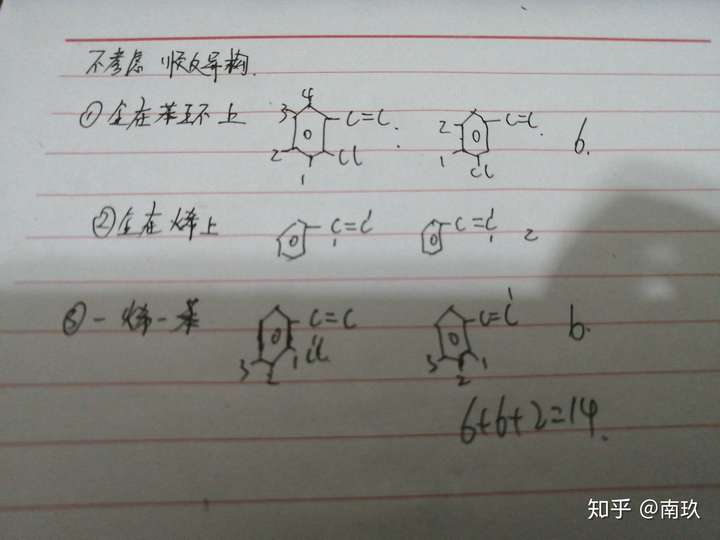 不考虑 顺反异构.
①全在苯环上 4 3 2 1 C=C Cl 2 1 C=C Cl 6.
②全在烯上 C=C C=C 2
③一烯一苯 C=C Cl 1 2 3 C=C 1 2 3 6.
6+6+2=14.
知乎 @南玖